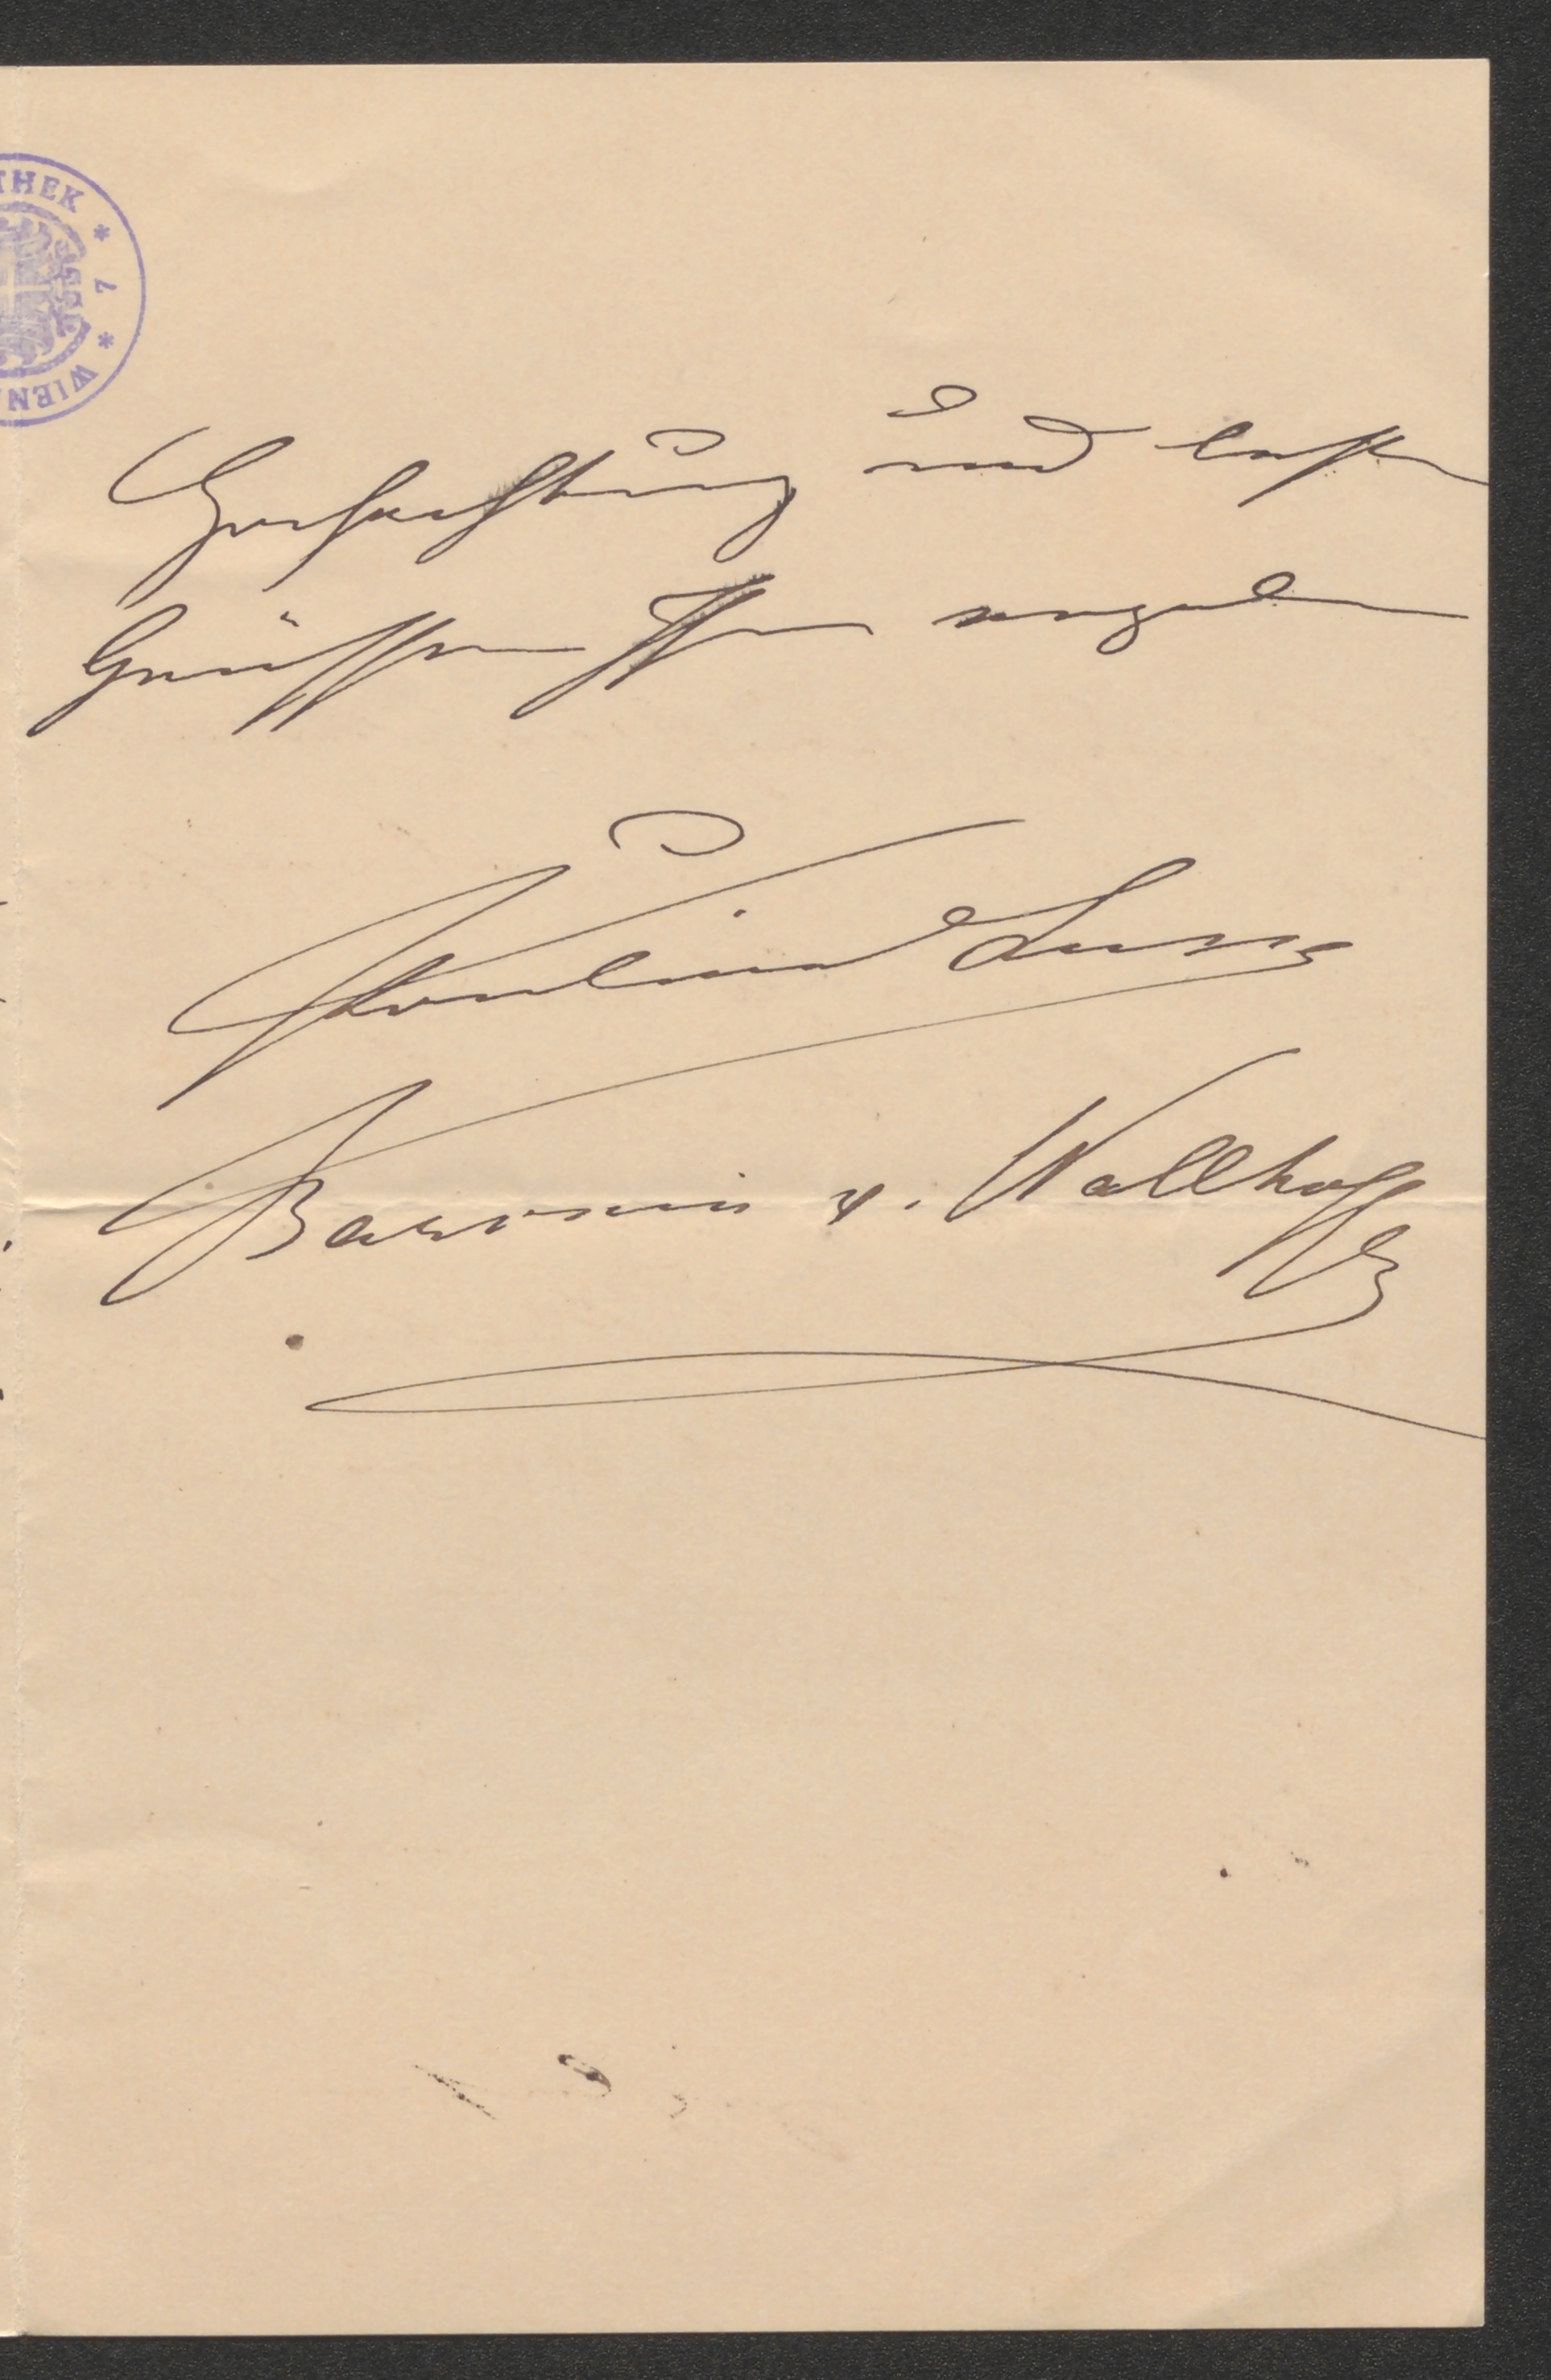 THEK * 7 * WIEN
Hochachtung und besten
Grüssen Ihre ergebene
Pauline Lucca
Baronin v. Wallhoffen